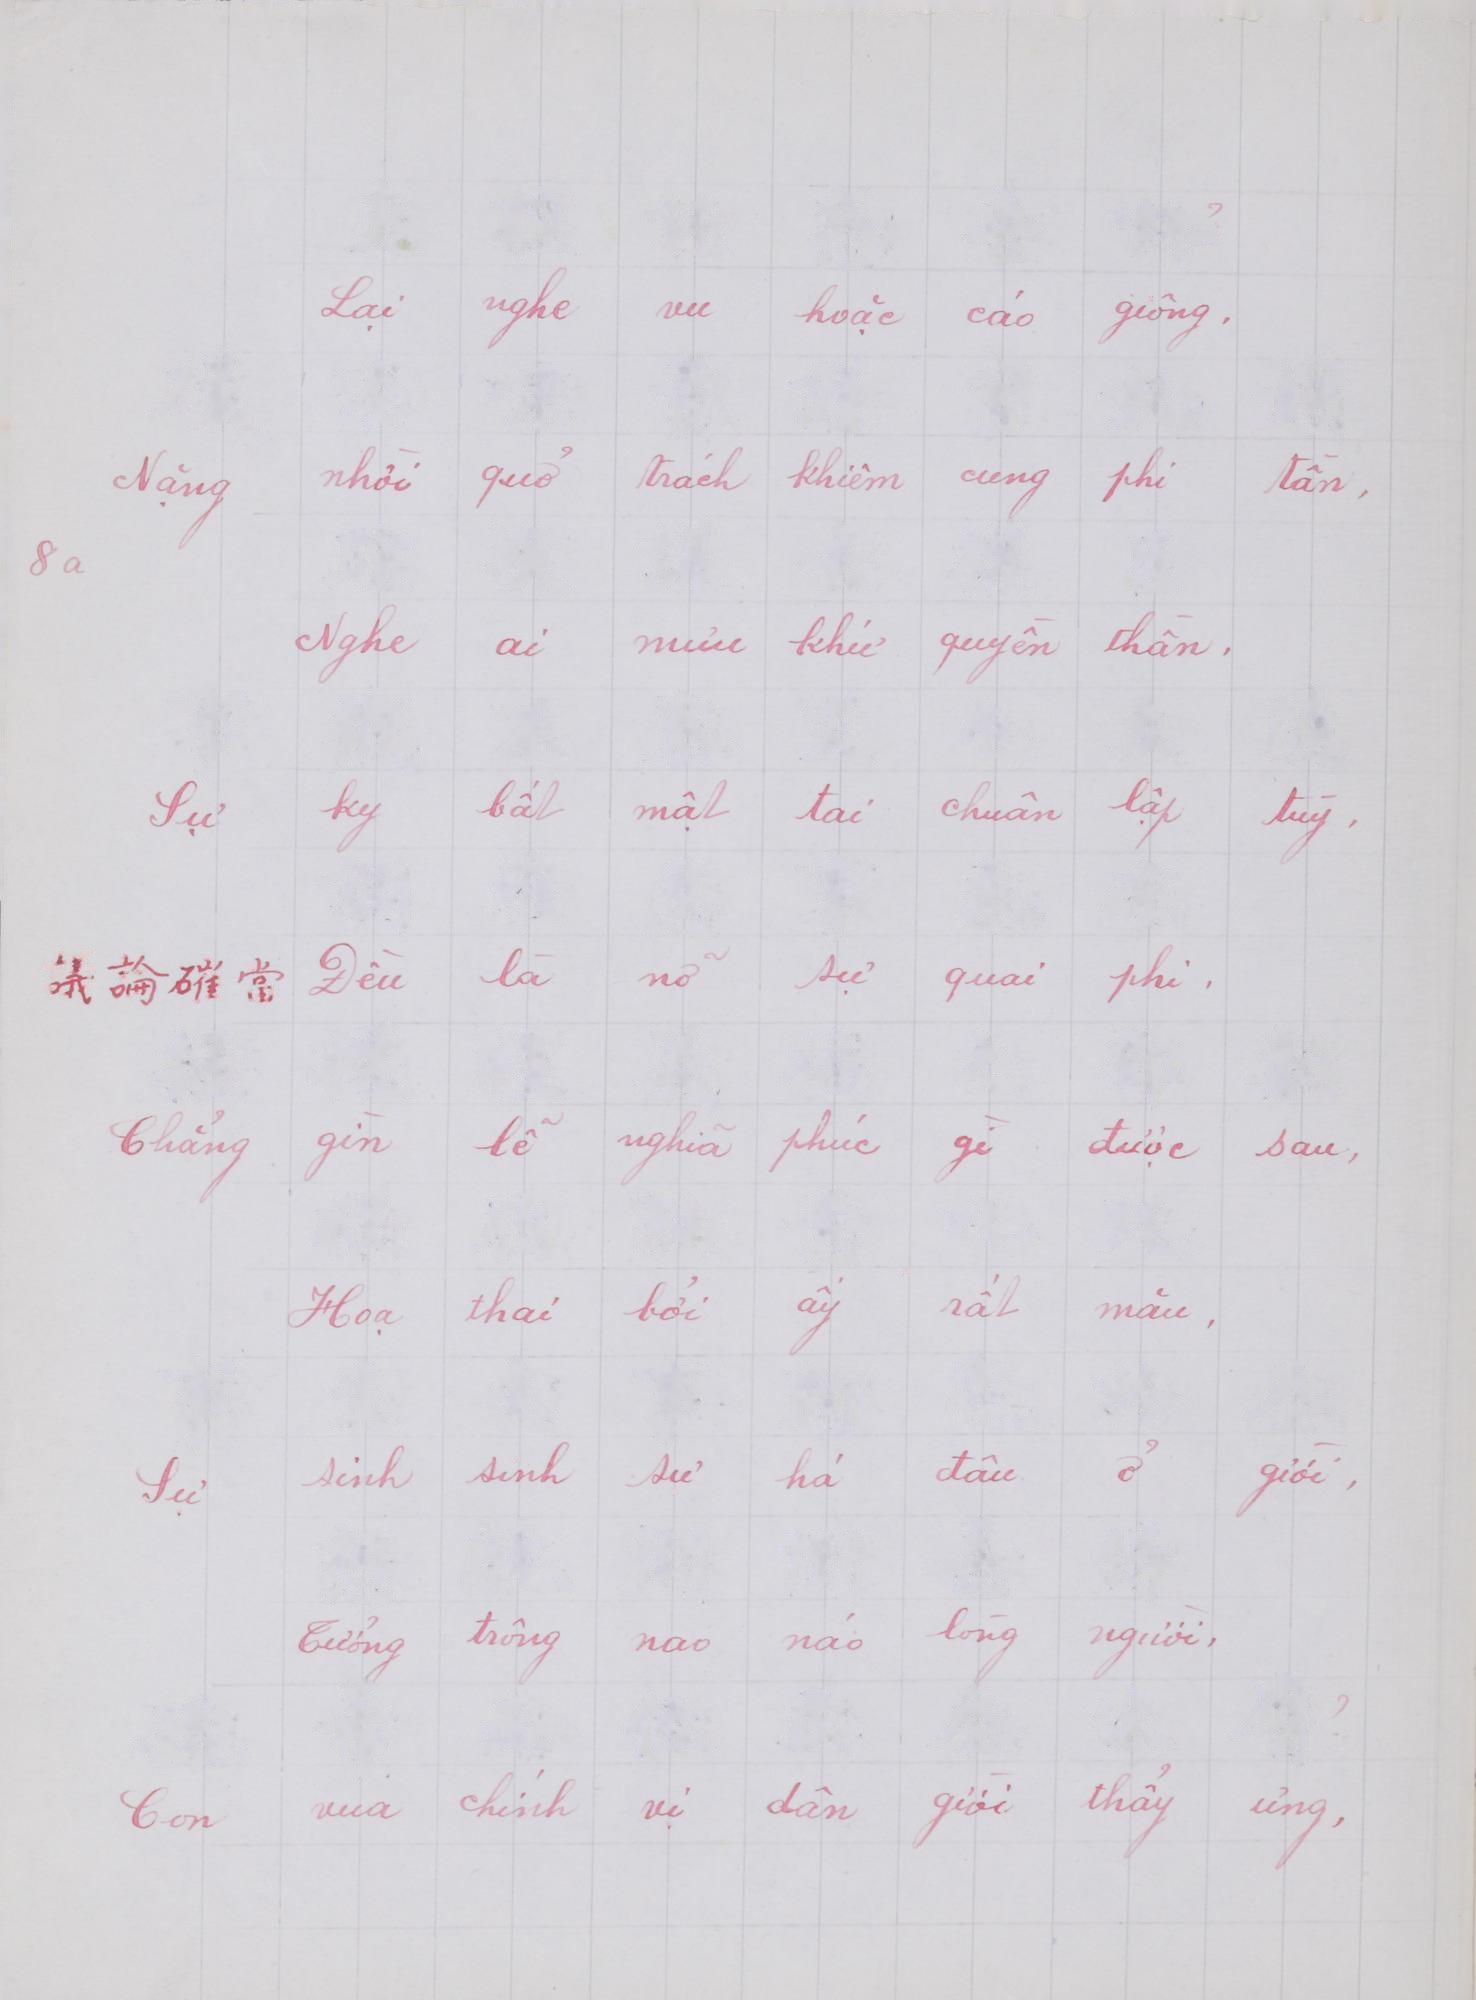 ?
Lại nghe vu hoặc cáo giông,
Nặng nhời quở trách khiêm cung phi tần,
8a
Nghe ai mưu khứ quyền thần,
Sự ky bất mật tai chuân lập tùy,
議論確當 Đều là nỗ sự quai phi,
Chẳng gìn lễ nghiã phúc gì được sau,
Hoạ thai bởi ấy rất mầu,
Sự sinh sinh sự há đâu ở giời,
Tưởng trông nao náo lòng người,
?
Con vua chính vị dân giời thẩy ưng,